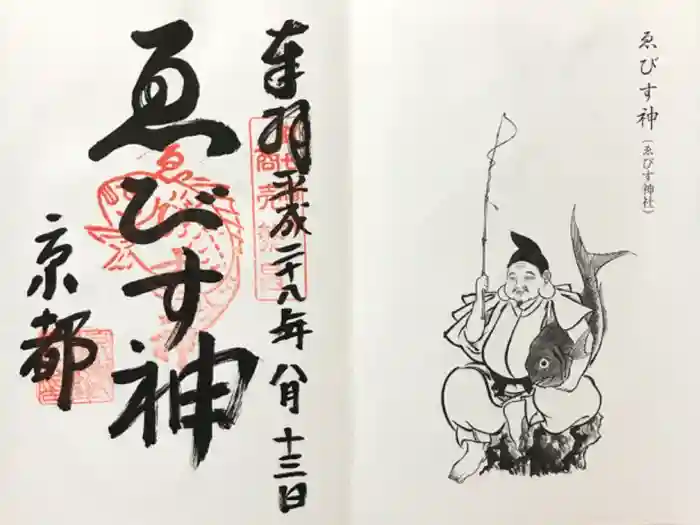 ゑびす神
(ゑびす神社)
奉拝 平成二十八年八月十三日
ゑびす神
京都